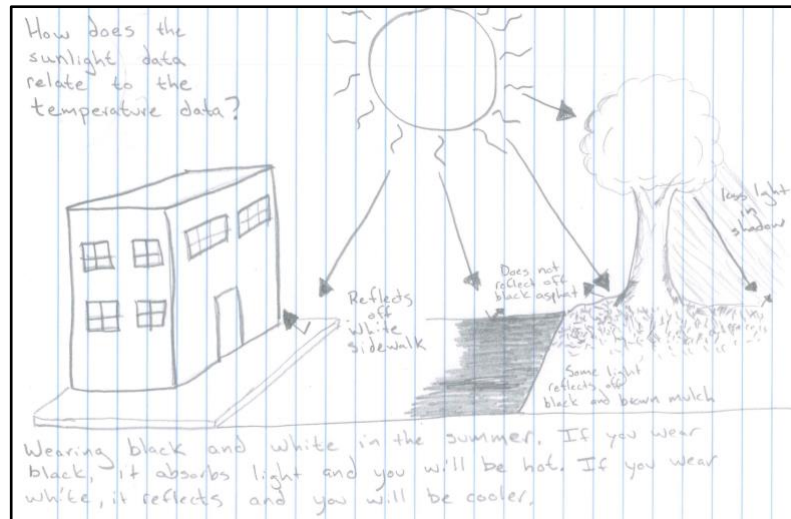 How does the
sunlight data
relate to the
temperature data?
less light
in
shadow
Does not
reflect off
black asphalt
Reflects
off
white
sidewalk
Some light
reflects off
black and brown mulch
Wearing black and white in the summer. If you wear
black, it absorbs light and you will be hot. If you wear
white, it reflects and you will be cooler.